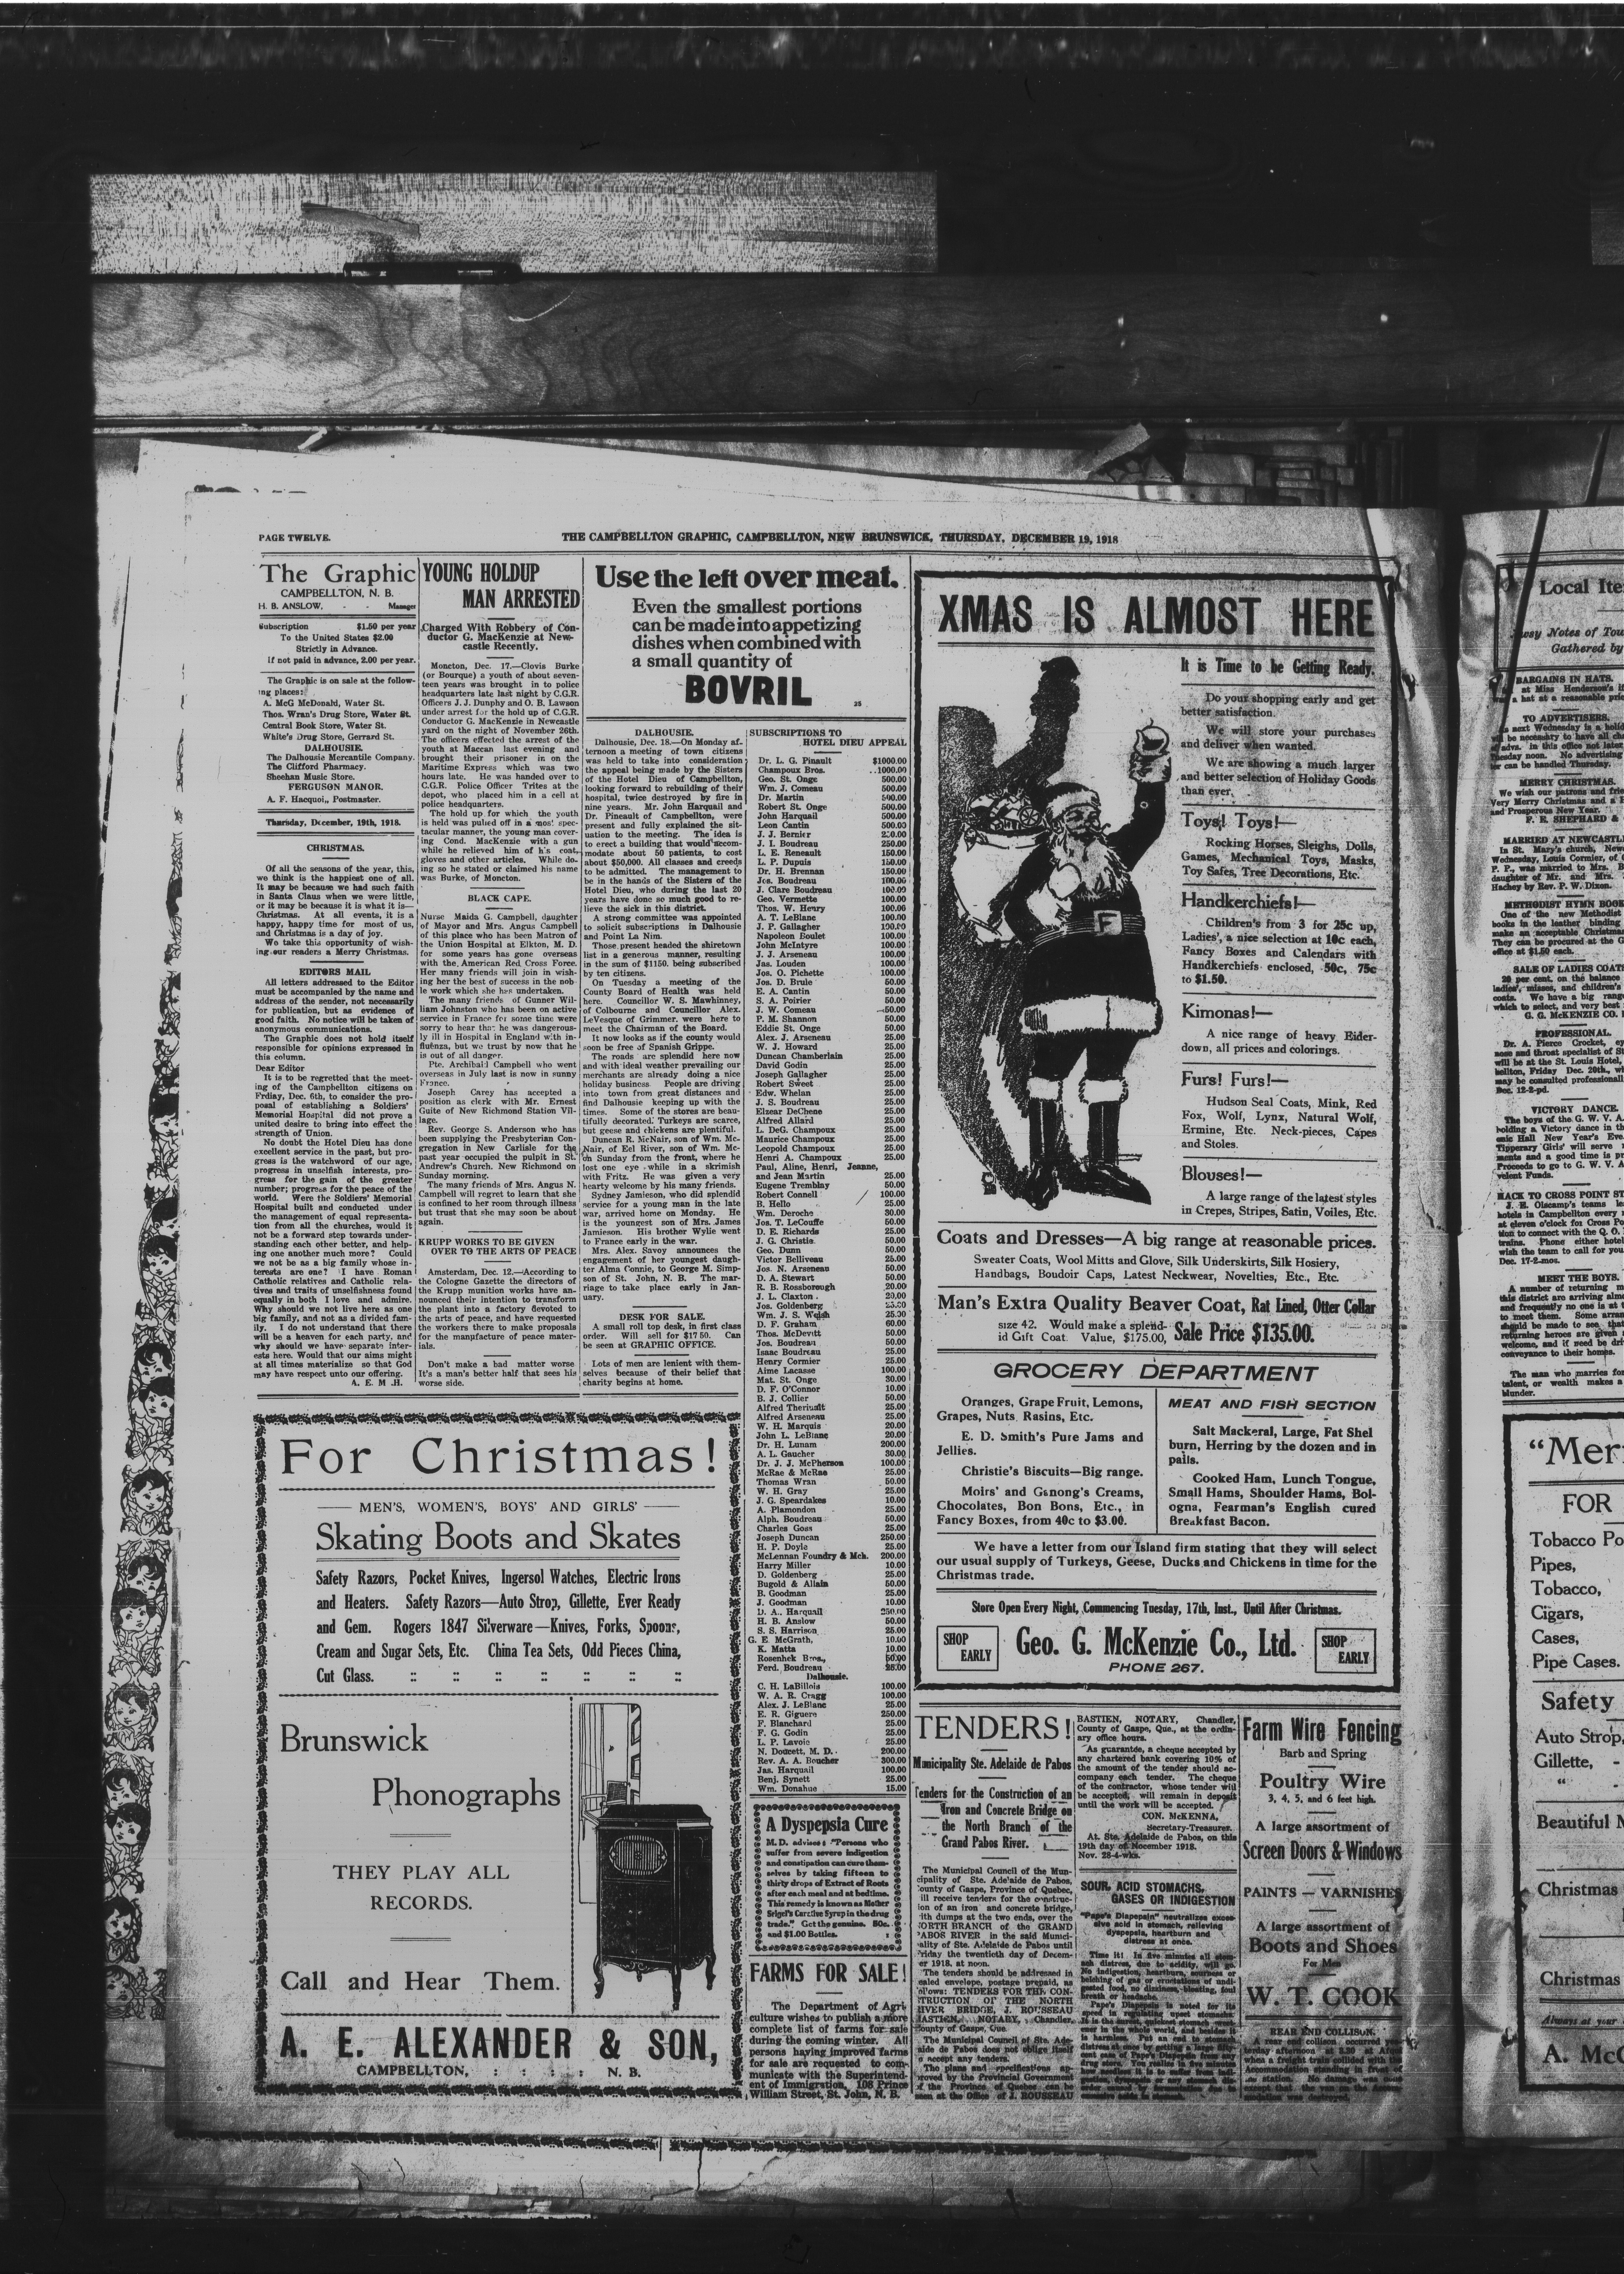 PAGE TWELVE.
THE CAMPBELLTON GRAPHIC, CAMPBELLTON, NEW BRUNSWICK, THURSDAY, DECEMBER 19, 1918
The Graphic
CAMPBELLTON, N. B.
H. B. ANSLOW, - - Manager
Subscription $1.50 per year
To the United States $2.00
Strictly in Advance.
If not paid in advance, 2.00 per year.
The Graphic is on sale at the follow-
ing places:
A. McG McDonald, Water St.
Thos. Wran's Drug Store, Water St.
Central Book Store, Water St.
White's Drug Store, Gerrard St.
DALHOUSIE.
The Dalhousie Mercantile Company.
The Clifford Pharmacy.
Sheehan Music Store.
FERGUSON MANOR.
A. F. Hacquoi., Postmaster.
Thursday, December, 19th, 1918.
CHRISTMAS.
Of all the seasons of the year, this,
we think is the happiest one of all.
It may be because we had such faith
in Santa Claus when we were little,
or it may be because it is what it is—
Christmas. At all events, it is a
happy, happy time for most of us,
and Christmas is a day of joy.
We take this opportunity of wish-
ing our readers a Merry Christmas.
EDITORS MAIL
All letters addressed to the Editor
must be accompanied by the name and
address of the sender, not necessarily
for publication, but as evidence of
good faith. No notice will be taken of
anonymous communications.
The Graphic does not hold itself
responsible for opinions expressed in
this column.
Dear Editor
It is to be regretted that the meet-
ing of the Campbellton citizens on
Frdiay, Dec. 6th, to consider the pro-
posal of establishing a Soldiers'
Memorial Hospital did not prove a
united desire to bring into effect the
strength of Union.
No doubt the Hotel Dieu has done
excellent service in the past, but pro-
gress is the watchword of our age,
progress in unselfish interests, pro-
gress for the gain of the greater
number; progress for the peace of the
world. Were the Soldiers' Memorial
Hospital built and conducted under
the management of equal representa-
tion from all the churches, would it
not be a forward step towards under-
standing each other better, and help-
ing one another much more? Could
we not be as a big family whose in-
terests are one? I have Roman
Catholic relatives and Catholic rela-
tives and traits of unselfishness found
equally in both I love and admire.
Why should we not live here as one
big family, and not as a divided fam-
ily. I do not understand that there
will be a heaven for each party, and
why should we have separate inter-
ests here. Would that our aims might
at all times materialize so that God
may have respect unto our offering.
A. E. M .H.
YOUNG HOLDUP
MAN ARRESTED
Charged With Robbery of Con-
ductor G. MacKenzie at New-
castle Recently.
Moncton, Dec. 17.—Clovis Burke
(or Bourque) a youth of about seven-
teen years was brought in to police
headquarters late last night by C.G.R.
Officers J. J. Dunphy and O. B. Lawson
under arrest for the hold up of C.G.R.
Conductor G. MacKenzie in Newcastle
yard on the night of November 26th.
The officers effected the arrest of the
youth at Maccan last evening and
brought their prisoner in on the
Maritime Express which was two
hours late. He was handed over to
C.G.R. Police Officer Trites at the
depot, who placed him in a cell at
police headquarters.
The hold up for which the youth
is held was pulled off in a most spec-
tacular manner, the young man cover-
ing Cond. MacKenzie with a gun
while he relieved him of h's coat,
gloves and other articles. While do-
ing so he stated or claimed his name
was Burke, of Moncton.
BLACK CAPE.
Nurse Maida G. Campbell, daughter
of Mayor and Mrs. Angus Campbell
of this place who has been Matron of
the Union Hospital at Elkton, M. D.
for some years has gone overseas
with the American Red Cross Force.
Her many friends will join in wish-
ing her the best of success in the nob-
le work which she has undertaken.
The many friends of Gunner Wil-
liam Johnston who has been on active
service in France for some time were
sorry to hear that he was dangerous-
ly ill in Hospital in England with in-
fluenza, but we trust by now that he
is out of all danger.
Pte. Archibald Campbell who went
overseas in July last is now in sunny
France.
Joseph Carey has accepted a
position as clerk with Mr. Ernest
Guite of New Richmond Station Vil-
lage.
Rev. George S. Anderson who has
been supplying the Presbyterian Con-
gregation in New Carlisle for the
past year occupied the pulpit in St.
Andrew's Church. New Richmond on
Sunday morning.
The many friends of Mrs. Angus N.
Campbell will regret to learn that she
is confined to her room through illness
but trust that she may soon be about
again.
KRUPP WORKS TO BE GIVEN
OVER TO THE ARTS OF PEACE
Amsterdam, Dec. 12.—According to
the Cologne Gazette the directors of
the Krupp munition works have an-
nounced their intention to transform
the plant into a factory devoted to
the arts of peace, and have requested
the workers there to make proposals
for the manpfacture of peace mater-
ials.
Don't make a bad matter worse
It's a man's better half that sees his
worse side.
Use the left over meat.
Even the smallest portions
can be made into appetizing
dishes when combined with
a small quantity of
BOVRIL
25
DALHOUSIE.
Dalhousie, Dec. 18.—On Monday af-
ternoon a meeting of town citizens
was held to take into consideration
the appeal being made by the Sisters
of the Hotel Dieu of Campbellton,
looking forward to rebuilding of their
hospital, twice destroyed by fire in
nine years. Mr. John Harquail and
Dr. Pineault of Campbellton, were
present and fully explained the sit-
uation to the meeting. The idea is
to erect a building that would accom-
modate about 50 patients, to cost
about $50,000. All classes and creeds
to be admitted. The management to
be in the hands of the Sisters of the
Hotel Dieu, who during the last 20
years have done so much good to re-
lieve the sick in this district.
A strong committee was appointed
to solicit subscriptions in Dalhousie
and Point La Nim.
Those present headed the shiretown
list in a generous manner, resulting
in the sum of $1150. being subscribed
by ten citizens.
On Tuesday a meeting of the
County Board of Health was held
here. Councillor W. S. Mawhinney,
of Colbourne and Councillor Alex.
LeVesque of Grimmer. were here to
meet the Chairman of the Board.
It now looks as if the county would
soon be free of Spanish Grippe.
The roads are splendid here now
and with ideal weather prevailing our
merchants are already doing a nice
holiday business. People are driving
into town from great distances and
find Dalhousie keeping up with the
times. Some of the stores are beau-
tifully decorated. Turkeys are scarce,
but geese and chickens are plentiful.
Duncan R. McNair, son of Wm. Mc-
Nair, of Eel River, son of Wm. Mc-
on Sunday from the front, where he
lost one eye while in a skrimish
with Fritz. He was given a very
hearty welcome by his many friends.
Sydney Jamieson, who did splendid
service for a young man in the late
war, arrived home on Monday. He
is the youngest son of Mrs. James
Jamieson. His brother Wylie went
to France early in the war.
Mrs. Alex. Savoy announces the
engagement of her youngest daugh-
ter Alma Connie, to George M. Simp-
son of St. John, N. B. The mar-
riage to take place early in Jan-
uary.
DESK FOR SALE.
A small roll top desk, in first class
order. Will sell for $17 50. Can
be seen at GRAPHIC OFFICE.
Lots of men are lenient with them-
selves because of their belief that
charity begins at home.
SUBSCRIPTIONS TO
HOTEL DIEU APPEAL
Dr. L. G. Pinault $1000.00
Champoux Bros. ..1000.00
Geo. St. Onge 500.00
Wm. J. Comeau 500.00
Dr. Martin 500.00
Robert St. Onge 500.00
John Harquail 500.00
Leon Cantin 500.00
J. J. Bernier
J. I. Boudreau 250.00
L. E. Reneault 150.00
L. P. Dupuis 150.00
Dr. H. Brennan 150.00
Jos. Boudreau 100.00
J. Clare Boudreau 100.00
Geo. Vermette 100.00
Thos. W. Henry 100.00
A. T. LeBlanc 100.00
J. P. Gallagher 100.00
Napoleon Boulet 100.00
John McIntyre 100.00
J. J. Arseneau 100.00
Jas. Louden 100.00
Jos. O. Pichette 100.00
Jos. D. Brule 50.00
E. A. Cantin 50.00
S. A. Poirier 50.00
J. W. Comeau 50.00
P. M. Shannon 50.00
Eddie St. Onge 50.00
Alex. J. Arseneau 25.00
W. J. Howard 25.00
Duncan Chamberlain 25.00
David Godin 25.00
Joseph Gallagher 25.00
Robert Sweet 25.00
Edw. Whelan 25.00
J. S. Boudreau 25.00
Elzear DeChene 25.00
Alfred Allard 25.00
L. DeG. Champoux 25.00
Maurice Champoux 25.00
Leopold Champoux 25.00
Henri A. Champoux 25.00
Paul, Aline, Henri, Jeanne,
and Jean Martin 25.00
Eugene Tremblay 50.00
Robert Connell 100.00
B. Hello 25.00
Wm. Deroche 30.00
Jos. T. LeCouffe 50.00
D. E. Richards 25.00
J. G. Christis. 50.00
Geo. Dunn 50.00
Victor Belliveau 25.00
Jos. N. Arseneau 50.00
D. A. Stewart 50.00
R. B. Rossborough 20.00
J. L. Claxton 20.00
Jos. Goldenberg
Wm. J. S. Welsh
D. F. Graham 60.00
Thos. McDevitt 50.00
Jos. Boudreau 50.00
Isaac Boudreau 25.00
Henry Cormier 25.00
Aime Lacasse 100.00
Mat. St. Onge 30.00
D. F. O'Connor 10.00
B. J. Collier 50.00
Alfred Theriault 25.00
Alfred Arseneau 25.00
W. H. Marquis 20.00
John L. LeBlanc 20.00
Dr. H. Lunam 200.00
A. L. Gaucher 30.00
Dr. J. J. McPherson 100.00
McRae & McRae 25.00
Thomas Wran 50.00
W. H. Gray 25.00
J. G. Speardakes 10.00
A. Plamondon 25.00
Alph. Boudreau 50.00
Charles Goss 25.00
Joseph Duncan 250.00
H. P. Doyle 25.00
McLennan Foundry & Mch. 200.00
Harry Miller 10.00
D. Goldenberg 25.00
Bugold & Allain 50.00
B. Goodman 25.00
J. Goodman 10.00
D. A., Harquail 250.00
H. B. Anslow 50.00
S. S. Harrison 25.00
G. E. McGrath, 10.00
K. Matta 10.00
Rosenhek Bros., 50.00
Ferd. Boudreau 25.00
Dalhousie.
C. H. LaBillois 100.00
W. A. R. Cragg 100.00
Alex. J. LeBlanc 25.00
E. R. Giguere 250.00
F. Blanchard 25.00
F. G. Godin 25.00
L. P. Lavoie 25.00
N. Doucett, M. D. 200.00
Rev. A. A. Boucher 300.00
Jas. Harquail 100.00
Benj. Synett 25.00
Wm. Donahue 15.00
A Dyspepsia Cure
M. D. advises: "Persons who
suffer from severe indigestion
and constipation can cure them-
selves by taking fifteen to
thirty drops of Extract of Roots
after each meal and at bedtime.
This remedy is known as Mother
Seigel's Curative Syrup in the drug
trade." Get the genuine. 50c.
and $1.00 Bottles.
FARMS FOR SALE!
The Department of Agri-
culture wishes to publish a more
complete list of farms for sale
during the coming winter. All
persons having improved farms
for sale are requested to com-
municate with the Superintend-
ent of Immigration, 108 Prince
William Street, St. John, N. B.
For Christmas!
MEN'S, WOMEN'S, BOYS' AND GIRLS'
Skating Boots and Skates
Safety Razors, Pocket Knives, Ingersol Watches, Electric Irons
and Heaters. Safety Razors—Auto Strop, Gillette, Ever Ready
and Gem. Rogers 1847 Silverware—Knives, Forks, Spoons,
Cream and Sugar Sets, Etc. China Tea Sets, Odd Pieces China,
Cut Glass. :: :: :: :: :: :: ::
Brunswick
Phonographs
THEY PLAY ALL
RECORDS.
Call and Hear Them.
A. E. ALEXANDER & SON,
CAMPBELLTON, : : : : N. B.
XMAS IS ALMOST HERE
It is Time to be Getting Ready.
Do your shopping early and get
better satisfaction.
We will store your purchases
and deliver when wanted.
We are showing a much larger
and better selection of Holiday Goods
than ever.
Toys! Toys!—
Rocking Horses, Sleighs, Dolls,
Games, Mechanical Toys, Masks,
Toy Safes, Tree Decorations, Etc.
Handkerchiefs!—
Children's from 3 for 25c up,
Ladies', a nice selection at 10c each,
Fancy Boxes and Calendars with
Handkerchiefs enclosed, 50c, 75c
to $1.50.
Kimonas!—
A nice range of heavy Eider-
down, all prices and colorings.
Furs! Furs!—
Hudson Seal Coats, Mink, Red
Fox, Wolf, Lynx, Natural Wolf,
Ermine, Etc. Neck-pieces, Capes
and Stoles.
Blouses!—
A large range of the latest styles
in Crepes, Stripes, Satin, Voiles, Etc.
F
Coats and Dresses—A big range at reasonable prices.
Sweater Coats, Wool Mitts and Glove, Silk Underskirts, Silk Hosiery,
Handbags, Boudoir Caps, Latest Neckwear, Novelties, Etc., Etc.
Man's Extra Quality Beaver Coat, Rat Lined, Otter Collar
size 42. Would make a splend-
id Gift Coat. Value, $175.00, Sale Price $135.00.
GROCERY DEPARTMENT
Oranges, Grape Fruit, Lemons,
Grapes, Nuts, Rasins, Etc.
E. D. Smith's Pure Jams and
Jellies.
Christie's Biscuits—Big range.
Moirs' and Ganong's Creams,
Chocolates, Bon Bons, Etc., in
Fancy Boxes, from 40c to $3.00.
MEAT AND FISH SECTION
Salt Mackeral, Large, Fat Shel
burn, Herring by the dozen and in
pails.
Cooked Ham, Lunch Tongue,
Small Hams, Shoulder Hams, Bol-
ogna, Fearman's English cured
Breakfast Bacon.
We have a letter from our Island firm stating that they will select
our usual supply of Turkeys, Geese, Ducks and Chickens in time for the
Christmas trade.
Store Open Every Night, Commencing Tuesday, 17th, Inst., Until After Christmas.
SHOP EARLY
Geo. G. McKenzie Co., Ltd.
PHONE 267.
SHOP EARLY
TENDERS!
Municipality Ste. Adelaide de Pabos
Tenders for the Construction of an
Iron and Concrete Bridge on
the North Branch of the
Grand Pabos River.
The Municipal Council of the Mun-
cipality of Ste. Ade'aide de Pabos,
ounty of Gaspe, Province of Quebec,
ill receive tenders for the construc-
ion of an iron and concrete bridge,
ith dumps at the two ends, over the
ORTH BRANCH of the GRAND
ABOS RIVER in the said Munici-
ality of Ste. Adelaide de Pabos until
riday the twentieth day of Decem-
er 1918, at noon.
The tenders should be addressed in
ealed envelope, postage prepaid, as
ollows: TENDERS FOR THE CON-
TRUCTION OF THE NORTH
IVER BRIDGE, J. ROUSSEAU
BASTIEN, NOTARY, Chandler,
ounty of Gaspe, Que.
The Municipal Council of Ste. Ade-
aide de Pabos does not oblige itself
o accept any tenders.
The plans and specifications ap-
roved by the Provincial Government
f the Province of Quebec can be
seen at the Office of J. ROUSSEAU
BASTIEN, NOTARY, Chandler,
County of Gaspe, Que., at the ordin-
ary office hours.
As guarantee, a cheque accepted by
any chartered bank covering 10% of
the amount of the tender should ac-
company each tender. The cheque
of the contractor, whose tender will
be accepted, will remain in deposit
until the work will be accepted.
CON. McKENNA,
Secretary-Treasurer.
At. Ste. Adelaide de Pabos, on this
19th day of November 1918.
Nov. 28-4-wks.
SOUR, ACID STOMACHS,
GASES OR INDIGESTION
"Pape's Diapepsin" neutralizes exces-
sive acid in stomach, relieving
dyspepsia, heartburn and
distress at once.
Time it! In five minutes all stom-
ach distress, due to acidity, will go.
No indigestion, heartburn, sourness or
belching of gas or eructations of undi-
gested food, no dizziness, bloating, foul
breath or headache.
Pape's Diapepsin is noted for its
speed in regulating upset stomachs.
Farm Wire Fencing
Barb and Spring
Poultry Wire
3, 4, 5, and 6 feet high.
A large assortment of
Screen Doors & Windows
PAINTS — VARNISHES
A large assortment of
Boots and Shoes
For Men
W. T. COOK
REAR END COLLISON.
A rear end collison occurred
Local Ite
osy Notes of Tow
Gathered by
BARGAINS IN HATS.
at Miss Henderson's
a hat at a reasonable pri
TO ADVERTISERS.
MERRY CHRISTMAS.
We wish our patrons and frie
Very Merry Christmas and a
and Prosperous New Year.
F. E. SHEPHARD &
MARRIED AT NEWCASTL
In St. Mary's church, New
Wednesday, Louis Cormier, of
P. P., was married to Mrs. B
daughter of Mr. and Mrs.
Hachey by Rev. P. W. Dixon.
METHODIST HYMN BOOK
One of the new Methodist
books in the leather binding
make an acceptable Christmas
They can be procured at the G
office at $1.50 each.
SALE OF LADIES COAT
20 per cent. on the balance
ladies', misses, and children's
coats. We have a big rang
which to select, and very best
G. G. McKENZIE CO.
PROFESSIONAL.
Dr. A. Pierce Crocket, ey
nose and throat specialist of St
will be at the St. Louis Hotel,
bellton, Friday Dec. 20th., wh
may be consulted professionall
Dec. 12-2-pd.
VICTORY DANCE.
The boys of the G. W. V. A.
holding a Victory dance in th
onic Hall New Year's Eve.
Tipperary 'Girls' will serve
ments and a good time is pr
Proceeds to go to G. W. V. A
velent Funds.
BACK TO CROSS POINT ST
J. E. Olscamp's teams le
hotels in Campbellton every
at eleven o'clock for Cross Po
tion to connect with the Q. O.
trains. Phone either hotel
wish the team to call for you
Dec. 17-2-mos.
MEET THE BOYS.
A number of returning m
this district are arriving almo
and frequently no one is at
to meet them. Some arran
should be made to see that
returning heroes are given
welcome, and if need be dri
conveyance to their homes.
The man who marries for
talent, or wealth makes a
blunder.
"Merr
FOR
Tobacco Po
Pipes,
Tobacco,
Cigars,
Cases,
Pipe Cases.
Safety
Auto Strop,
Gillette, -
"
Beautiful
Christmas
Christmas
Always at your
A. McG